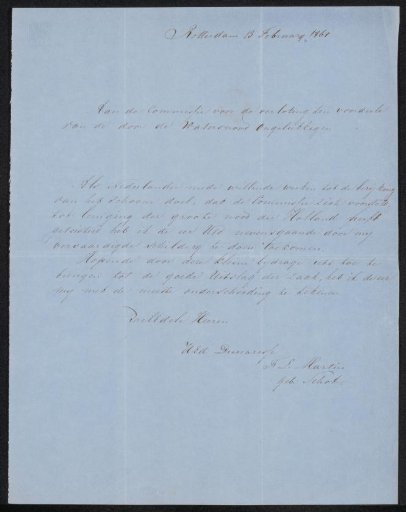 Rotterdam 13 Februarij 1861
Aan de Commissie voor de verloting ten voordeele
van de door de Watersnood Ongelukkigen
Als Nederlander mede willende werken tot de bereiking
van het schoone doel, dat de Commissie zich voorstelt
tot leniging der groote nood die Holland heeft
getroffen heb ik de eer U nevensgaande door mij
vervaardigde schilderij te doen toekomen
Hopende door deze kleine bijdrage iets toe te
brengen tot de goede uitslag der zaak, heb ik de eer
mij met de meeste onderscheiding te teekenen
Heeren
UEd. Dienaresse
Martin
geb. Scholt